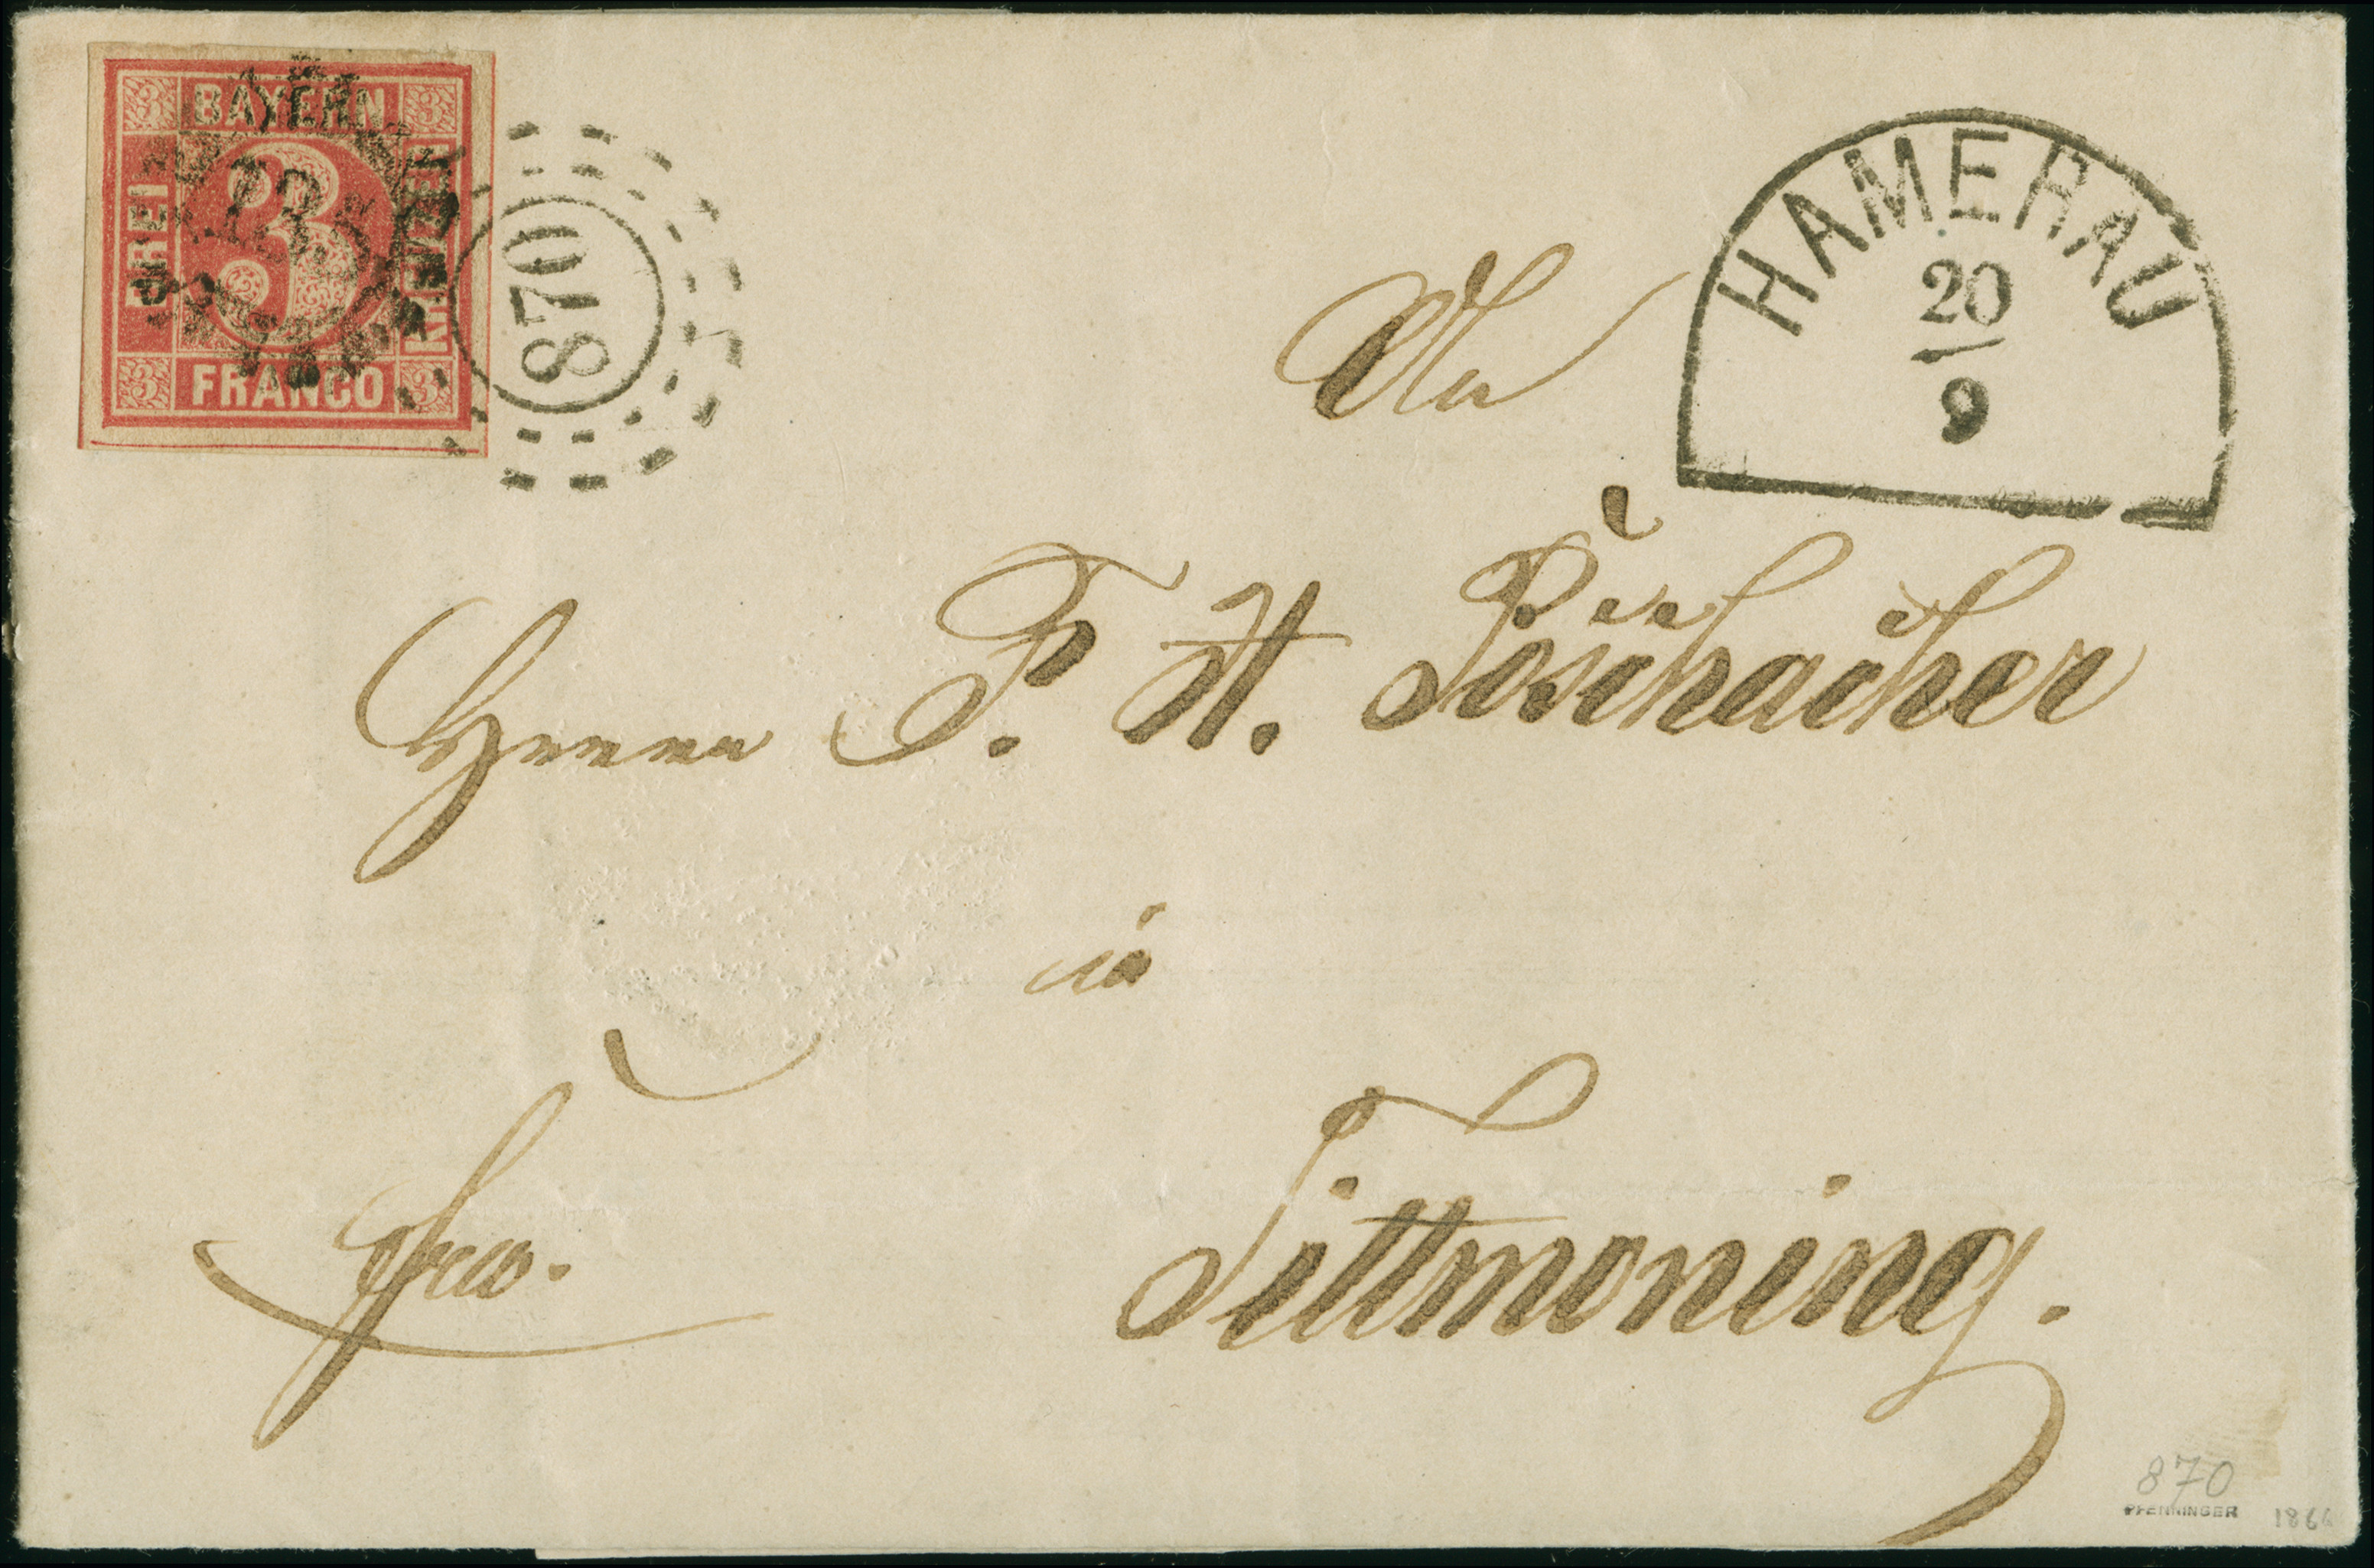 3 BAYERN 3
DREI 3 KREUZER
3 FRANCO 3
870
HAMERAU
20
9
An
Herrn F. H. Pöschacher
in
Tittmoning.
frco.
870
PFENNINGER